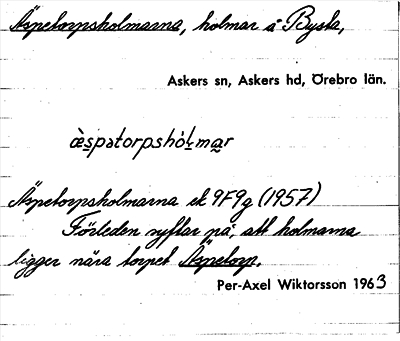 Äspetorpsholmarna, holmar å Bysta,
Askers sn, Askers hd, Örebro län.
æ̀spətorpshóḷmar
Äspetorpsholmarna ek 9F9g (1957)
Förleden syftar på att holmarna
ligger nära torpet Äspetorp.
Per-Axel Wiktorsson 1963